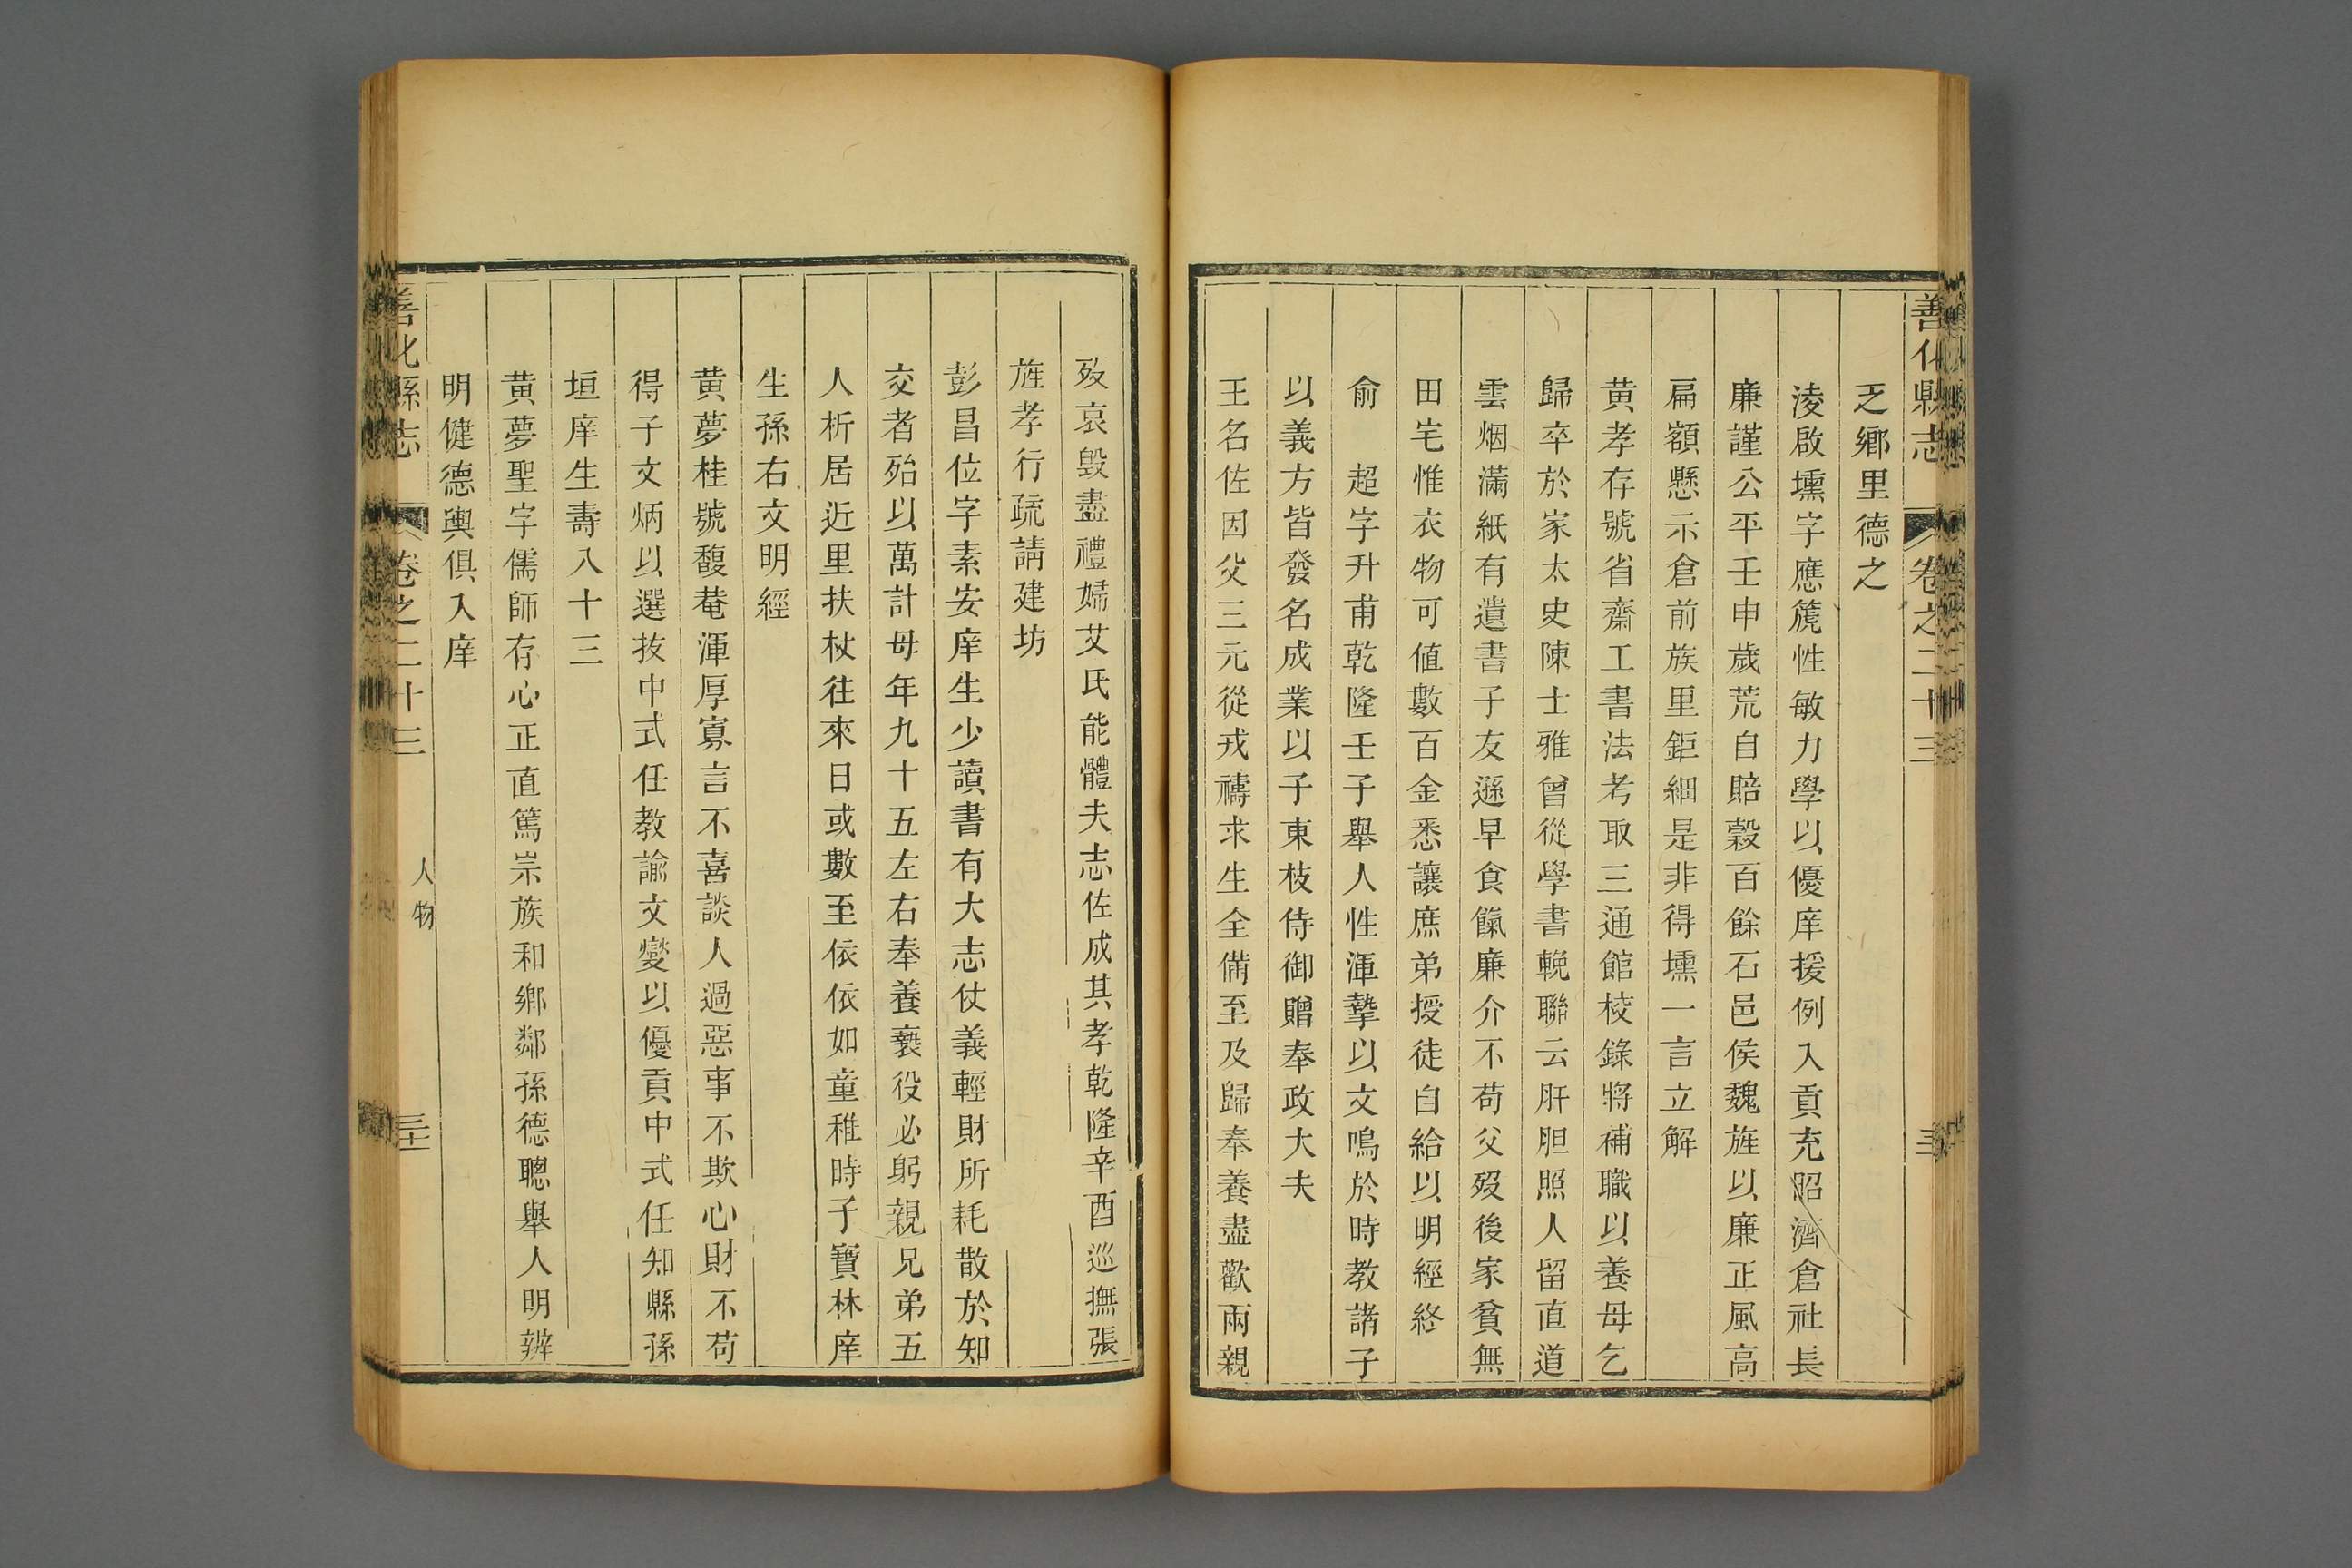 善化縣志 卷之二十三
乏鄉里德之
淩啟壎字應篪性敏力學以優庠援例入貢充昭濟倉社長
廉謹公平壬申歲荒自賠穀百餘石邑侯魏旌以廉正風高
扁額懸示倉前族里鉅細是非得壎一言立解
黄孝存號省齋工書法考取三通館校錄將補職以養母乞
歸卒於家太史陳士雅曾從學書輓聯云肝胆照人留直道
雲烟滿紙有遺書子友遜早食餼廉介不苟父歿後家貧無
田宅惟衣物可値數百金悉讓庶弟授徒自給以明經終
俞　超字升甫乾隆壬子舉人性渾摯以文鳴於時教諸子
以義方皆發名成業以子東枝侍御贈奉政大夫
王名佐因父三元從戎禱求生全備至及歸奉養盡歡兩親
歿哀毁盡禮婦艾氏能體夫志佐成其孝乾隆辛酉巡撫張
旌孝行疏請建坊
彭昌位字素安庠生少讀書有大志仗義輕財所耗散於知
交者殆以萬計母年九十五左右奉養褻役必躬親兄弟五
人析居近里扶杖往來日或數至依依如童稚時子寶林庠
生孫右文明經
黄夢桂號馥菴渾厚寡言不喜談人過惡事不欺心財不苟
得子文炳以選抜中式任教諭文燮以優貢中式任知縣孫
垣庠生壽八十三
黄夢聖字儒師存心正直篤宗族和鄉鄰孫德聰舉人明辨
明健德輿俱入庠
善化縣志 卷之二十三 人物